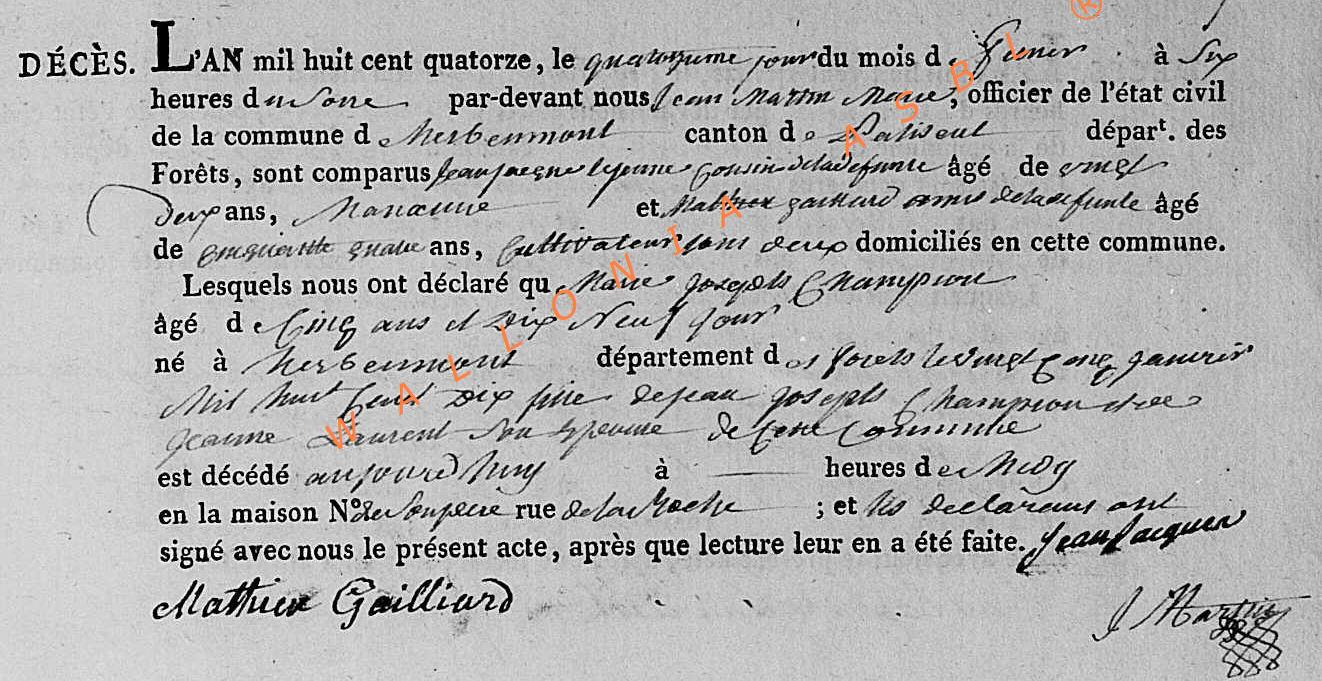 DÉCÈS. L'AN mil huit cent quatorze, le quatorzieme jour du mois de fevrier à Six
heures du Soire par-devant nous Jean Martin Marie, officier de l'état civil
de la commune de Herbeumont canton de Paliseul départ. des
Forêts, sont comparus Jean jacque lejeune Cousin de la defunte âgé de vingt
deux ans, et Mathieu gailliard amis de la defunte âgé
de cinquante quatre ans, Cultivateur tous deux domiciliés en cette commune.
Lesquels nous ont déclaré que Marie joseph Champion
âgé de Cinq ans et Dix Neuf jour
né à herbeumont département des forets le vingt Cinq janvier
Mil huit Cent Dix fille de jean joseph Champion et de
jeanne Laurent Son Epouse de Cette Commune
est décédé aujourd huy à heures de Midy
en la maison N° de Son pere rue de la Roche ; et les declarans ont
signé avec nous le présent acte, après que lecture leur en a été faite. Jean Jacques
Mathieu Gailliard
J Martin
WALLONIA ASBL ®